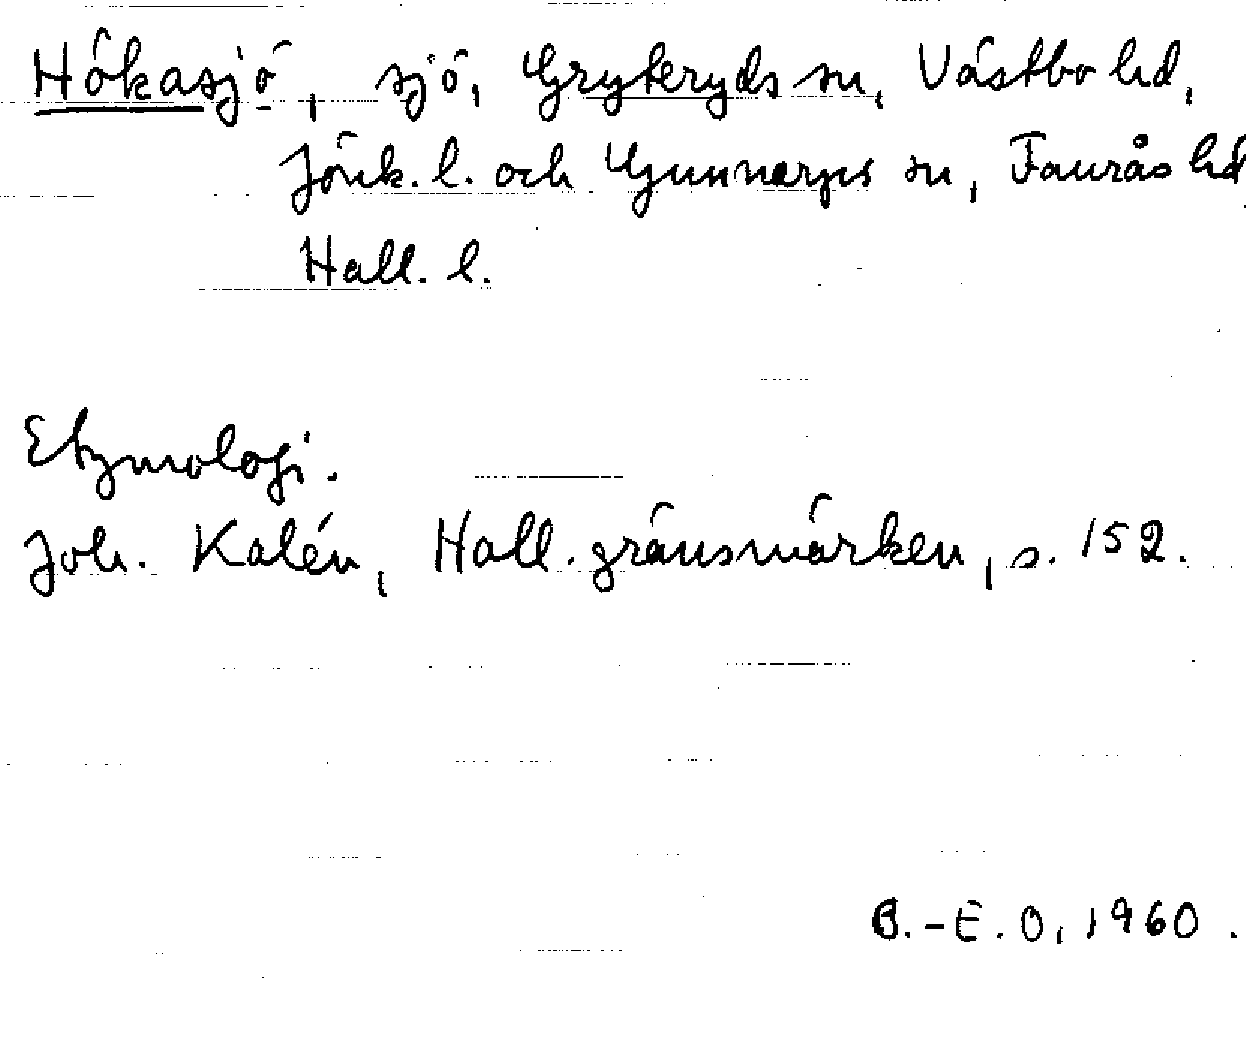 Hökasjö, sjö, Gryteryds sn, Västbo hd,
Jönk. l. och Gunnarps sn, Faurås hd
Hall. l.
Etymologi.
Joh. Kalén, Hall. gränsmärken, s. 152.
B.-E. O, 1960.